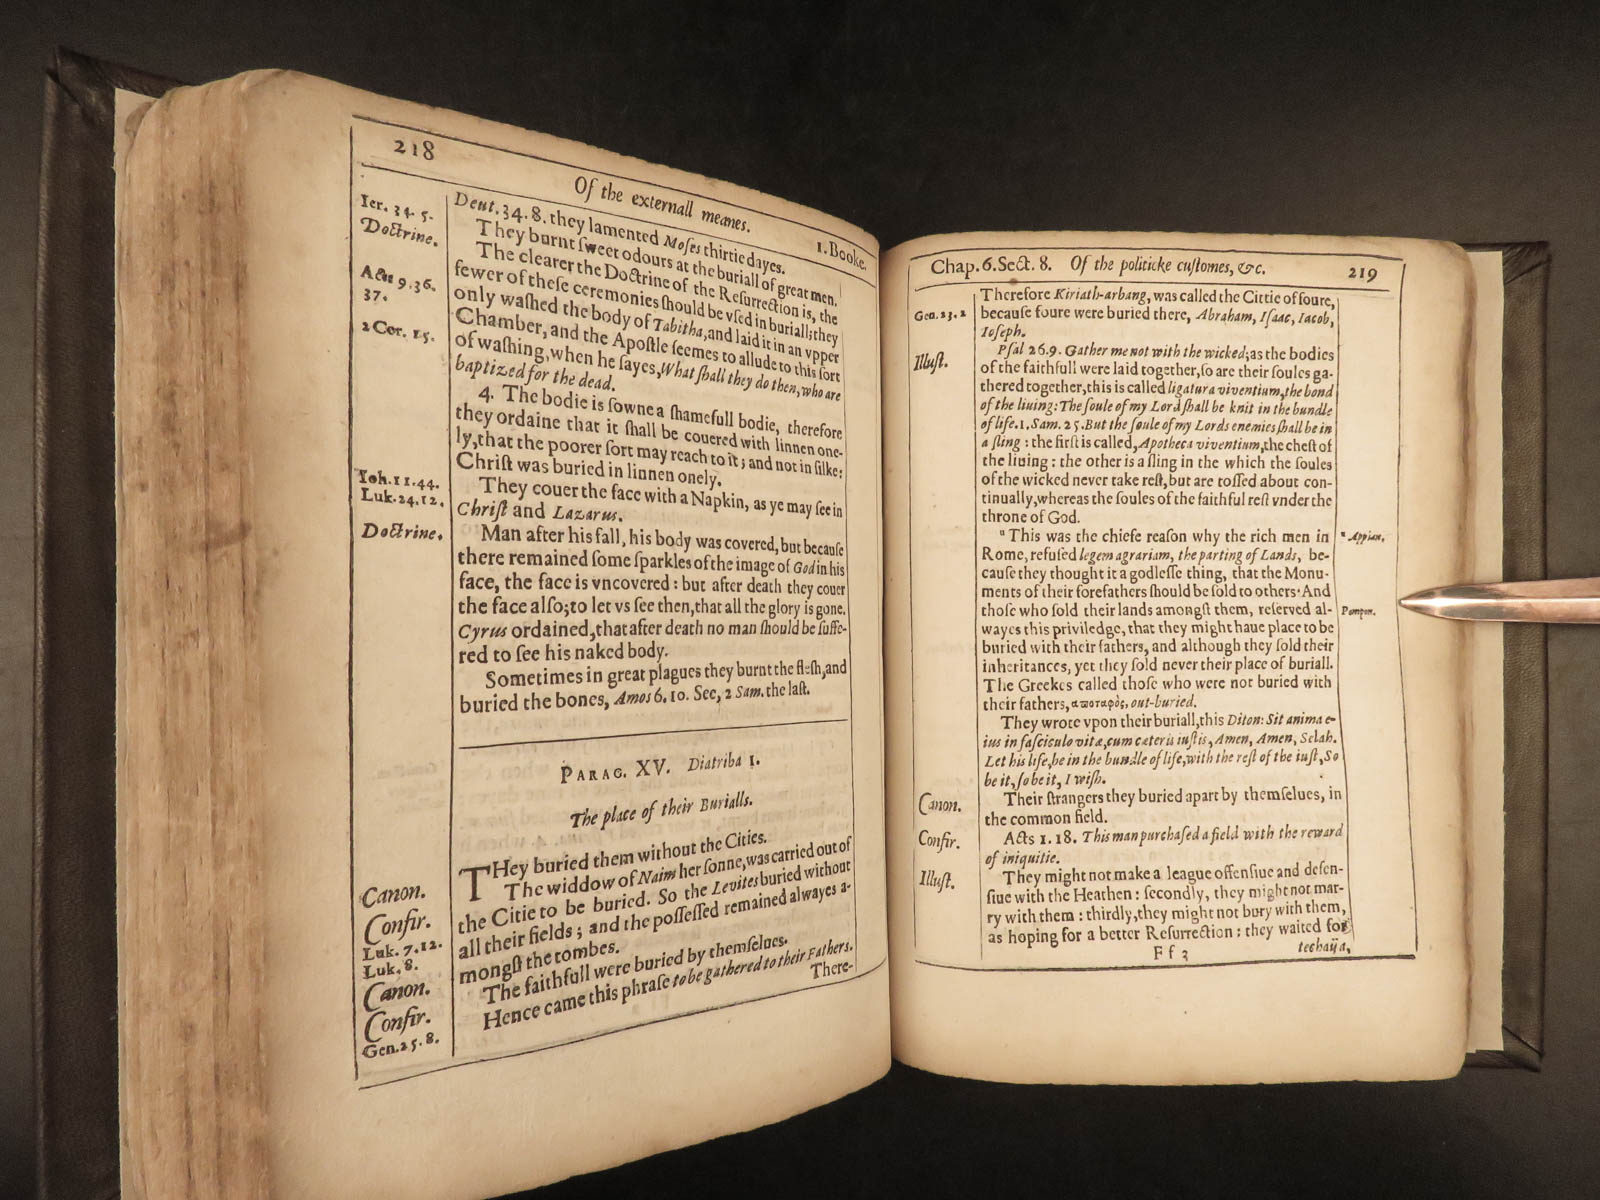 218
Of the externall meanes.
1. Booke.
Ier. 34. 5.
Doctrine.
Acts 9.36.
37.
2 Cor. 15.
Ioh. 11.44.
Luk. 24.12.
Doctrine.
Deut. 34. 8. they lamented Moses thirtie dayes.
They burnt ſweet odours at the buriall of great men.
The clearer the Doctrine of the Reſurrection is, the
fewer of theſe ceremonies ſhould be vſed in buriall; they
only waſhed the body of Tabitha, and laid it in an vpper
Chamber, and the Apoſtle ſeemes to allude to this ſort
of waſhing, when he ſayes, What ſhall they do then, who are
baptized for the dead.
4. The bodie is ſowne a ſhamefull bodie, therefore
they ordaine that it ſhall be couered with linnen one-
ly, that the poorer ſort may reach to it; and not in ſilke:
Chriſt was buried in linnen onely.
They couer the face with a Napkin, as ye may ſee in
Chriſt and Lazarus.
Man after his fall, his body was covered, but becauſe
there remained ſome ſparkles of the image of God in his
face, the face is vncovered: but after death they couer
the face alſo; to let vs ſee then, that all the glory is gone.
Cyrus ordained, that after death no man ſhould be ſuffe-
red to ſee his naked body.
Sometimes in great plagues they burnt the fleſh, and
buried the bones, Amos 6. 10. See, 2 Sam. the laſt.
PARAG. XV. Diatriba 1.
The place of their Burialls.
Canon.
Confir.
Luk. 7.12.
Luk. 8.
Canon.
Confir.
Gen. 25. 8.
THey buried them without the Cities.
The widdow of Naim her ſonne, was carried out of
the Citie to be buried. So the Levites buried without
all their fields; and the poſſeſſed remained alwayes a-
mongſt the tombes.
The faithfull were buried by themſelues.
Hence came this phraſe to be gathered to their Fathers.
There-
Chap. 6. Sect. 8. Of the politicke cuſtomes, &c. 219
Gen. 23. 2
Illuſt.
Therefore Kiriath-arbang, was called the Cittie of foure,
becauſe foure were buried there, Abraham, Iſaac, Iacob,
Ioſeph.
Pſal 26.9. Gather me not with the wicked; as the bodies
of the faithfull were laid together, ſo are their ſoules ga-
thered together, this is called ligatura viventium, the bond
of the liuing: The ſoule of my Lord ſhall be knit in the bundle
of life. 1. Sam. 25. But the ſoule of my Lords enemies ſhall be in
a ſling : the firſt is called, Apotheca viventium, the cheſt of
the liuing : the other is a ſling in the which the ſoules
of the wicked never take reſt, but are toſſed about con-
tinually, whereas the ſoules of the faithful reſt vnder the
throne of God.
" This was the chiefe reaſon why the rich men in
Rome, refuſed legem agrariam, the parting of Lands, be-
cauſe they thought it a godleſſe thing, that the Monu-
ments of their forefathers ſhould be ſold to others: And
thoſe who ſold their lands amongſt them, reſerved al-
wayes this priviledge, that they might haue place to be
buried with their fathers, and although they ſold their
inheritances, yet they ſold never their place of buriall.
The Greekes called thoſe who were not buried with
their fathers, αποταφὸς, out-buried.
They wrote vpon their buriall, this Diton: Sit anima e-
ius in faſciculo vitæ, cum cæteris iuſtis, Amen, Amen, Selah.
Let his life, be in the bundle of life, with the reſt of the iuſt, So
be it, ſo be it, I wiſh.
" Appian.
Pompon.
Canon.
Confir.
Illuſt.
Their ſtrangers they buried apart by themſelues, in
the common field.
Acts 1. 18. This man purchaſed a field with the reward
of iniquitie.
They might not make a league offenſiue and defen-
ſiue with the Heathen : ſecondly, they might not mar-
ry with them : thirdly, they might not bury with them,
as hoping for a better Reſurrection : they waited for
F f 3
techaija,